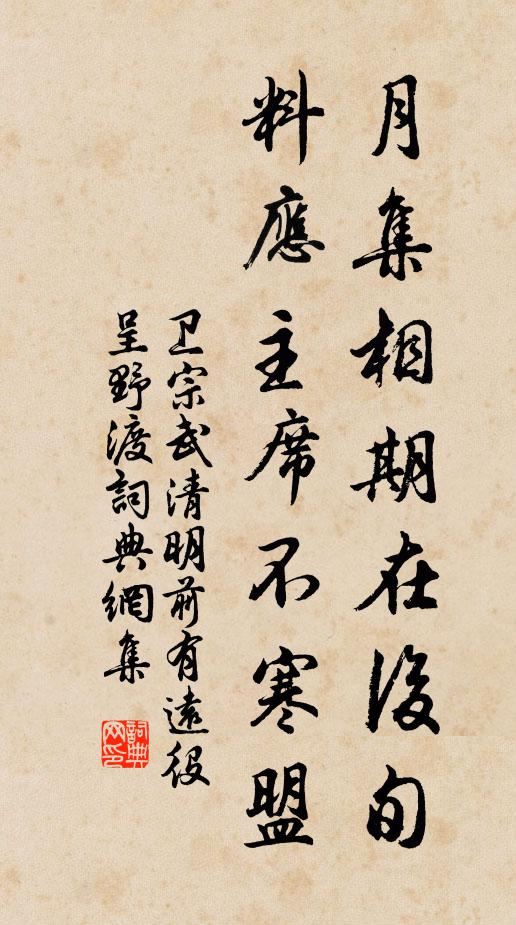 月集相期在後旬
料應主席不寒盟
卫宗武清明前有遠役
呈野渡詞典網集
詞典網印